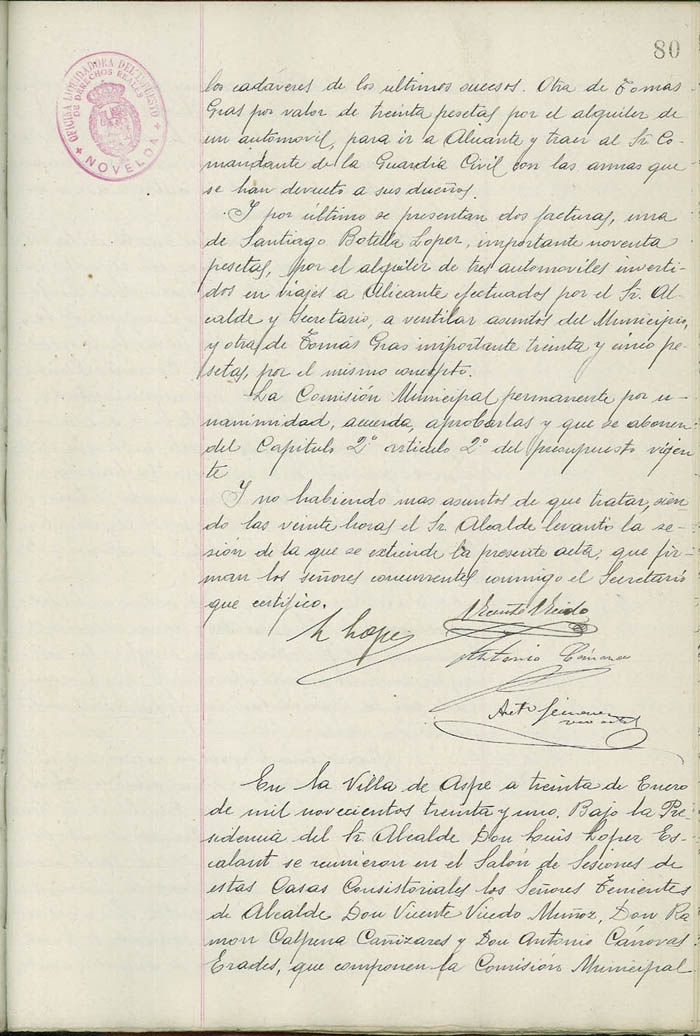 80
OFICINA LIQUIDADORA DEL IMPUESTO
DE DERECHOS REALES
NOVELDA
los cadáveres de los ultimos sucesos. Otra de Tomás
Gras por valor de treinta pesetas por el alquiler de
un automovil, para ir a Alicante y traer al Sr Co-
mandante de la Guardia Civil con las armas que
se han devuelto a sus dueños.
Y por último se presentan dos facturas, una
de Santiago Botella Lopez, importante noventa
pesetas, por el alquiler de tres automoviles inverti-
dos en viajes a Alicante efectuados por el Sr. Al-
calde y Secretario, a ventilar asuntos del Municipio,
y otra de Tomás Gras importante treinta y cinco pe-
setas, por el mismo concepto.
La Comisión Municipal permanente por u-
nanimidad, acuerda, aprobarlas y que se abonen
del Capitulo 2º articulo 2º del presupuesto vigen
te
Y no habiendo mas asuntos de que tratar, sien
do las veinte horas el Sr. Alcalde levantó la se-
sión de la que se extiende la presente acta, que fir-
man los señores concurrentes conmigo el Secretario
que certifico.
Vicente Vicedo
L Lopez
Antonio Cánovas
En la Villa de Aspe a treinta de Enero
de mil novecientos treinta y uno. Bajo la Pre
sidencia del Sr. Alcalde Don Luis Lopez Es-
calant se reunieron en el Salón de Sesiones de
estas Casas Consistoriales los Señores Tenientes
de Alcalde Don Vicente Vicedo Muñoz, Don Ra
mon Calpena Cañizares y Don Antonio Cánovas
Erades, que componen la Comisión Municipal